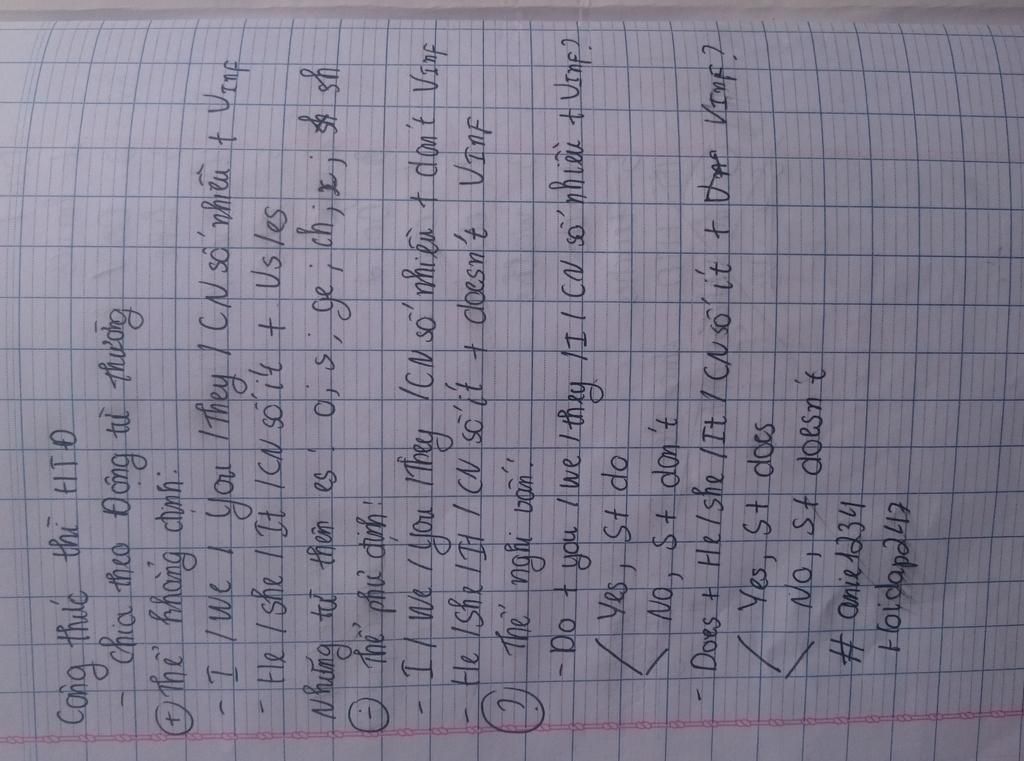 Công thức thì HTĐ
- Chia theo Động từ thường
(+) Thể khẳng định:
- I / We / You / They / CN số nhiều + VInF
- He / She / It / CN số ít + Vs/es
Những từ thêm es: o, s, ge, ch, z, sh
(-) Thể phủ định:
- I / We / you / They / CN số nhiều + don't VInF
- He / She / It / CN số ít + doesn't VInF
(?) Thể nghi vấn:
- Do + you / we / they / I / CN số nhiều + VInF?
Yes, St do
No, St don't
- Does + He / she / It / CN số ít + VInF?
Yes, St does
No, St doesn't
# anie1234
Hoidap247